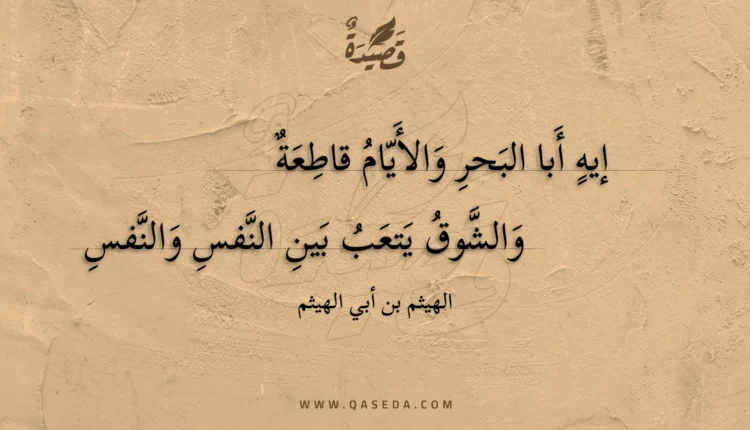 قَصِيدَةٌ
إيهٍ أَبا البَحرِ وَالأَيّامُ قاطِعَةٌ
وَالشَّوقُ يَتعَبُ بَينِ النَّفسِ وَالنَّفسِ
الهيثم بن أبي الهيثم
WWW.QASEDA.COM